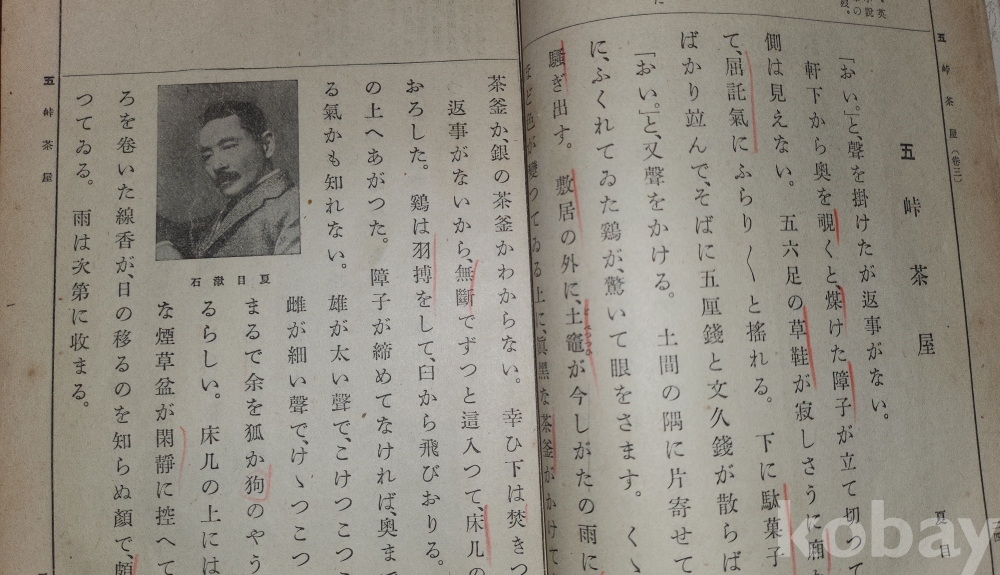 五峠茶屋（卷三）
五峠茶屋
夏目
「おい。」と、聲を掛けたが返事がない。
軒下から奥を覗くと、煤けた障子が立て切つて
側は見えない。 五六足の草鞋が寂しさうに廂
て、屈託氣にふらり〱と搖れる。 下に駄菓子
ばかり竝んで、そばに五厘錢と文久錢が散らば
「おい。」と、又聲をかける。 土間の隅に片寄せて
に、ふくれてゐた鷄が、驚いて眼をさます。 くゝ
騷ぎ出す。 敷居の外に、土竈が今しがたの雨に
ほど色が變つてゐる上に、眞黑な茶釜がかけて
茶釜か、銀の茶釜かわからない。 幸ひ下は焚きつ
返事がないから、無斷でずつと這入つて、床几の
おろした。 鷄は羽搏をして、臼から飛びおりる。
の上へあがつた。 障子が締めてなければ、奥まで
る氣かも知れない。 雄が太い聲で、こけつこつこ
雌が細い聲で、けゝつこつ
まるで余を狐か狗のやう
るらしい。 床几の上には
な煙草盆が閑靜に控へて
夏目漱石
ろを卷いた線香が、日の移るのを知らぬ顏で、頗
つてゐる。 雨は次第に收まる。
五峠茶屋
kobay